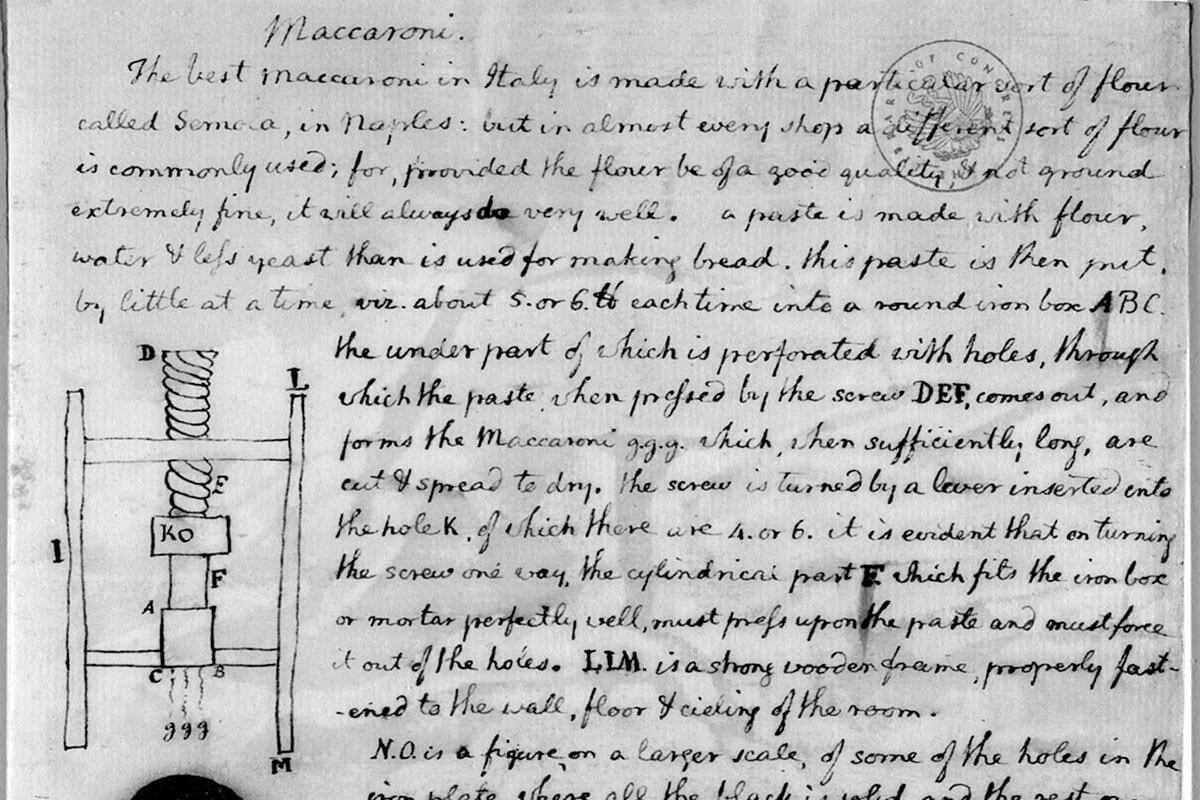 Maccaroni.
The best maccaroni in Italy is made with a particular sort of flour
called Semola, in Naples: but in almost every shop a different sort of flour
is commonly used; for, provided the flour be of a good quality, & not ground
extremely fine, it will always do very well. a paste is made with flour,
water & less yeast than is used for making bread. this paste is then put,
by little at a time, viz. about 5. or 6. ℔ each time into a round iron box ABC.
the under part of which is perforated with holes, through
which the paste, when pressed by the screw DEF, comes out, and
forms the Maccaroni g.g.g. which, when sufficiently long, are
cut & spread to dry. the screw is turned by a lever inserted into
the hole K, of which there are 4. or 6. it is evident that on turning
the screw one way, the cylindrical part F. which fits the iron box
or mortar perfectly well, must press upon the paste and must force
it out of the holes. LLM. is a strong wooden frame, properly fast-
-ened to the wall, floor & cieling of the room.
N.O. is a figure, on a larger scale, of some of the holes in the
iron plate, where all the black is solid, and the rest
D
L
E
KO
I
F
A
C
B
g g g
M